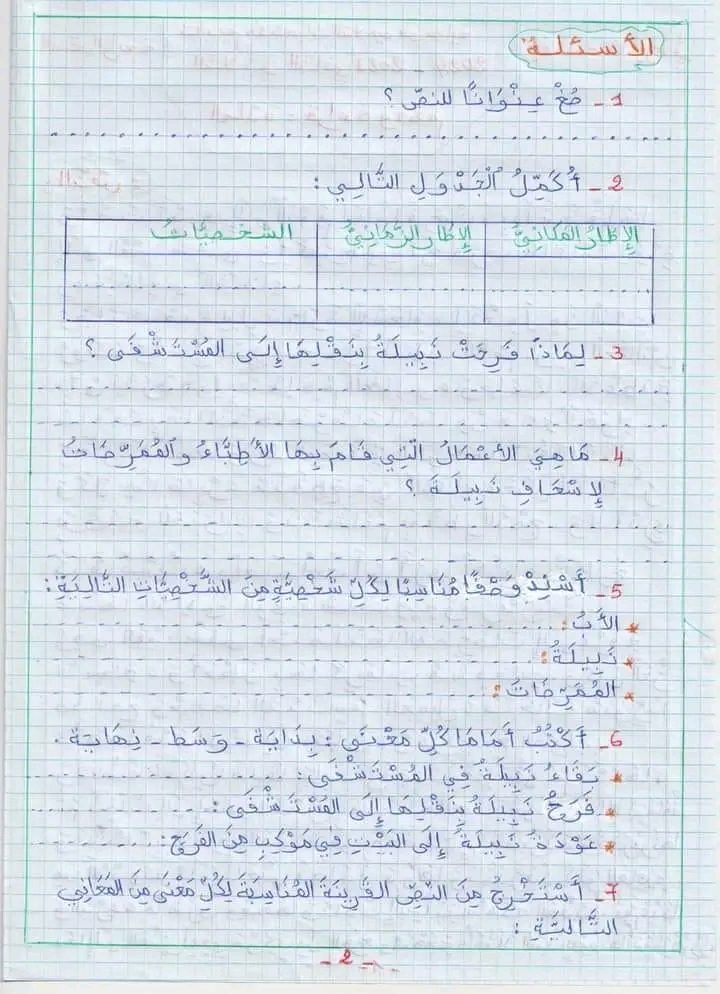 الأسئلة
1 - صُغْ عِنْوَانًا للنصّ ؟
2 - أُكَمِّلُ الْجَدْوَلِ التَّالِي :
الإِطَارُ المَكَانِيُّ الإِطَارُ الزَّمَانِيُّ الشخصيّاتُ
3 - لِمَاذَا فَرِحَتْ نَبِيلَةُ بِنَقْلِهَا إِلَى المُسْتَشْفَى ؟
4 - مَا هِيَ الأَعْمَالُ الّتِي قَامَ بِهَا الأَطِبَّاءُ والمُمَرِّضَاتُ
لِإِسْعَافِ نَبِيلَةَ ؟
5 - أُسْنِدُ وَصْفًا مُنَاسِبًا لِكُلِّ شَخْصِيَّةٍ مِنَ الشَّخْصِيَّاتِ التَّالِيَةِ :
* الأَبُ :
* نَبِيلَةُ :
* المُمَرِّضَاتُ :
6 - أَكْتُبُ أَمَامَ كُلِّ مَعْنَى : بِدَايَة - وَسَط - نِهَايَة .
* بَقَاءُ نَبِيلَةَ فِي المُسْتَشْفَى :
* فَرَحُ نَبِيلَةَ بِنَقْلِهَا إِلَى المُسْتَشْفَى :
* عَوْدَةُ نَبِيلَةَ إِلَى البَيْتِ فِي مَوْكِبٍ مِنَ الفَرَحِ :
7 - أَسْتَخْرِجُ مِنَ النّصِّ القَرِينَةَ المُنَاسِبَةَ لِكُلِّ مَعْنَى مِنَ المَعَانِي
التَّالِيَةِ :
- 2 -